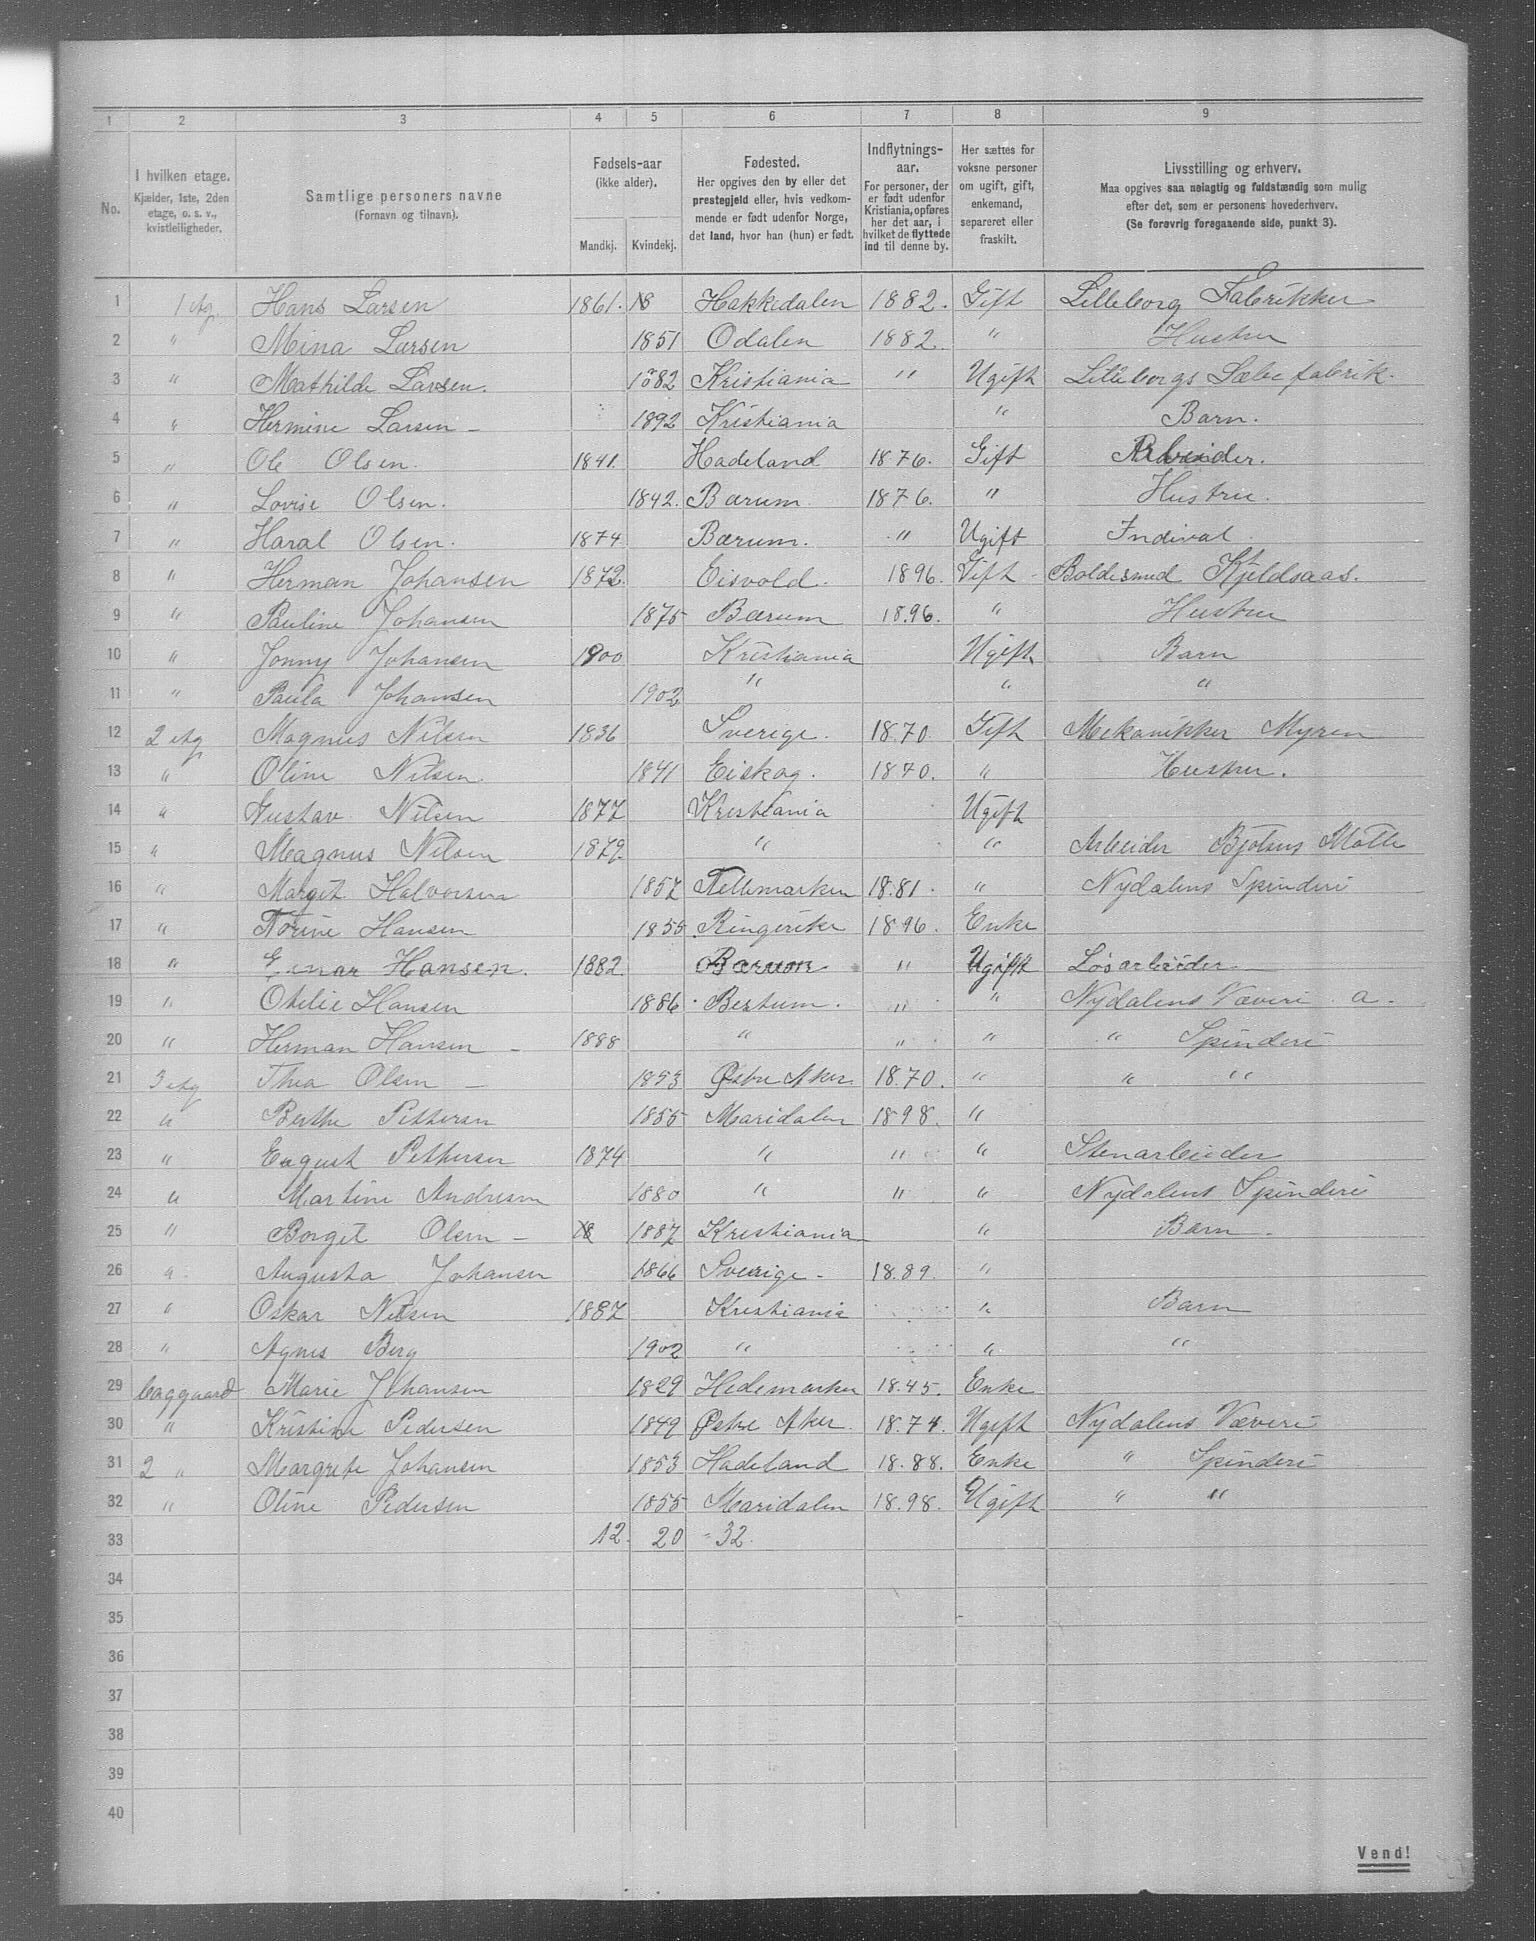 1 2 3 4 5 6 7 8 9
No.
I hvilken etage.
Kjælder, 1ste, 2den
etage, o. s. v.,
kvistleiligheder.
Samtlige personers navne
(Fornavn og tilnavn).
Fødsels-aar
(ikke alder).
Mandkj. Kvindekj.
Fødested.
Her opgives den by eller det
prestegjeld eller, hvis vedkom-
mende er født udenfor Norge,
det land, hvor han (hun) er født.
Indflytnings-
aar.
For personer, der
er født udenfor
Kristiania, opføres
her det aar, i
hvilket de flyttede
ind til denne by.
Her sættes for
voksne personer
om ugift, gift,
enkemand,
separeret eller
fraskilt.
Livsstilling og erhverv.
Maa opgives saa nøiagtig og fuldstændig som mulig
efter det, som er personens hovederhverv.
(Se forøvrig foregaaende side, punkt 3).
1 1 etg Hans Larsen 1861. 18 Hakkedalen 1882. Gift Lilleborg Fabrikker
2 " Mina Larsen 1851 Odalen 1882. " Hustru
3 " Mathilde Larsen. 1882 Kristiania " Ugift Lilleborgs Sæbefabrik.
4 " Hermine Larsen - 1892 Kristiania " Barn.
5 " Ole Olsen. 1841. Hadeland 1876. Gift Arbeider.
6 " Lovise Olsen. 1842. Bærum. 1876. " Hustru.
7 " Haral Olsen. 1874 Bærum. " Ugift Indival.
8 " Herman Johansen 1872. Eisvold. 1896. Gift - Boldesmed Kjeldsaas.
9 " Pauline Johansen 1875 Bærum 18.96. " Hustru
10 " Jonny Johansen 1900 Kristiania Ugift Barn
11 " Paula Johansen 1902 " " "
12 2 etg Magnus Nilsen 1836 Sverige. 18.70. Gift Mekanikker Myren
13 " Oline Nilsen 1841 Eiskog. 1870. " Hustru.
14 " Gustav Nilsen 1877 Kristiania Ugift
15 " Magnus Nilsen 1879. " " Arbeider Bjølsens Mølle
16 " Margit Halvorsen 1857 Tellemarken 18.81. " Nydalens Spinderi
17 " Torine Hansen 1855 Ringerike 1896. Enke
18 " Einar Hansen. 1882 Bærum " Ugift Løsarbeider
19 " Otelie Hansen 1886. Bestum. " " Nydalens Væveri a.
20 " Herman Hansen - 1888 " " " " Spinderi
21 3 etg Thea Olsen - 1853 Østre Aker 18.70. " " "
22 " Berthe Pettersen 1855 Maridalen 1898. "
23 " Eugust Pettersen 1874 " " " Stenarbeider
24 " Martine Andresen 1880 " " " Nydalens Spinderi
25 " Borgit Olsen - 18 1887 Kristiania " Barn.
26 " Augusta Johansen 1866 Sverige - 18.89. "
27 " Oskar Nilsen 1887 Kristiania " Barn
28 " Agnes Berg 1902 " " "
29 baggaard Marie Johansen 1829 Hedemarken 18.45. Enke
30 " Kristine Pedersen 1849 Østre Aker. 18.74. Ugift Nydalens Væveri
31 2 " Margrete Johansen 1853 Hadeland 18.88. Enke " Spinderi
32 " Oline Pedersen 1855 Maridalen 18.98. Ugift " "
33 12. 20 = 32.
34
35
36
37
38
39
40
Vend!